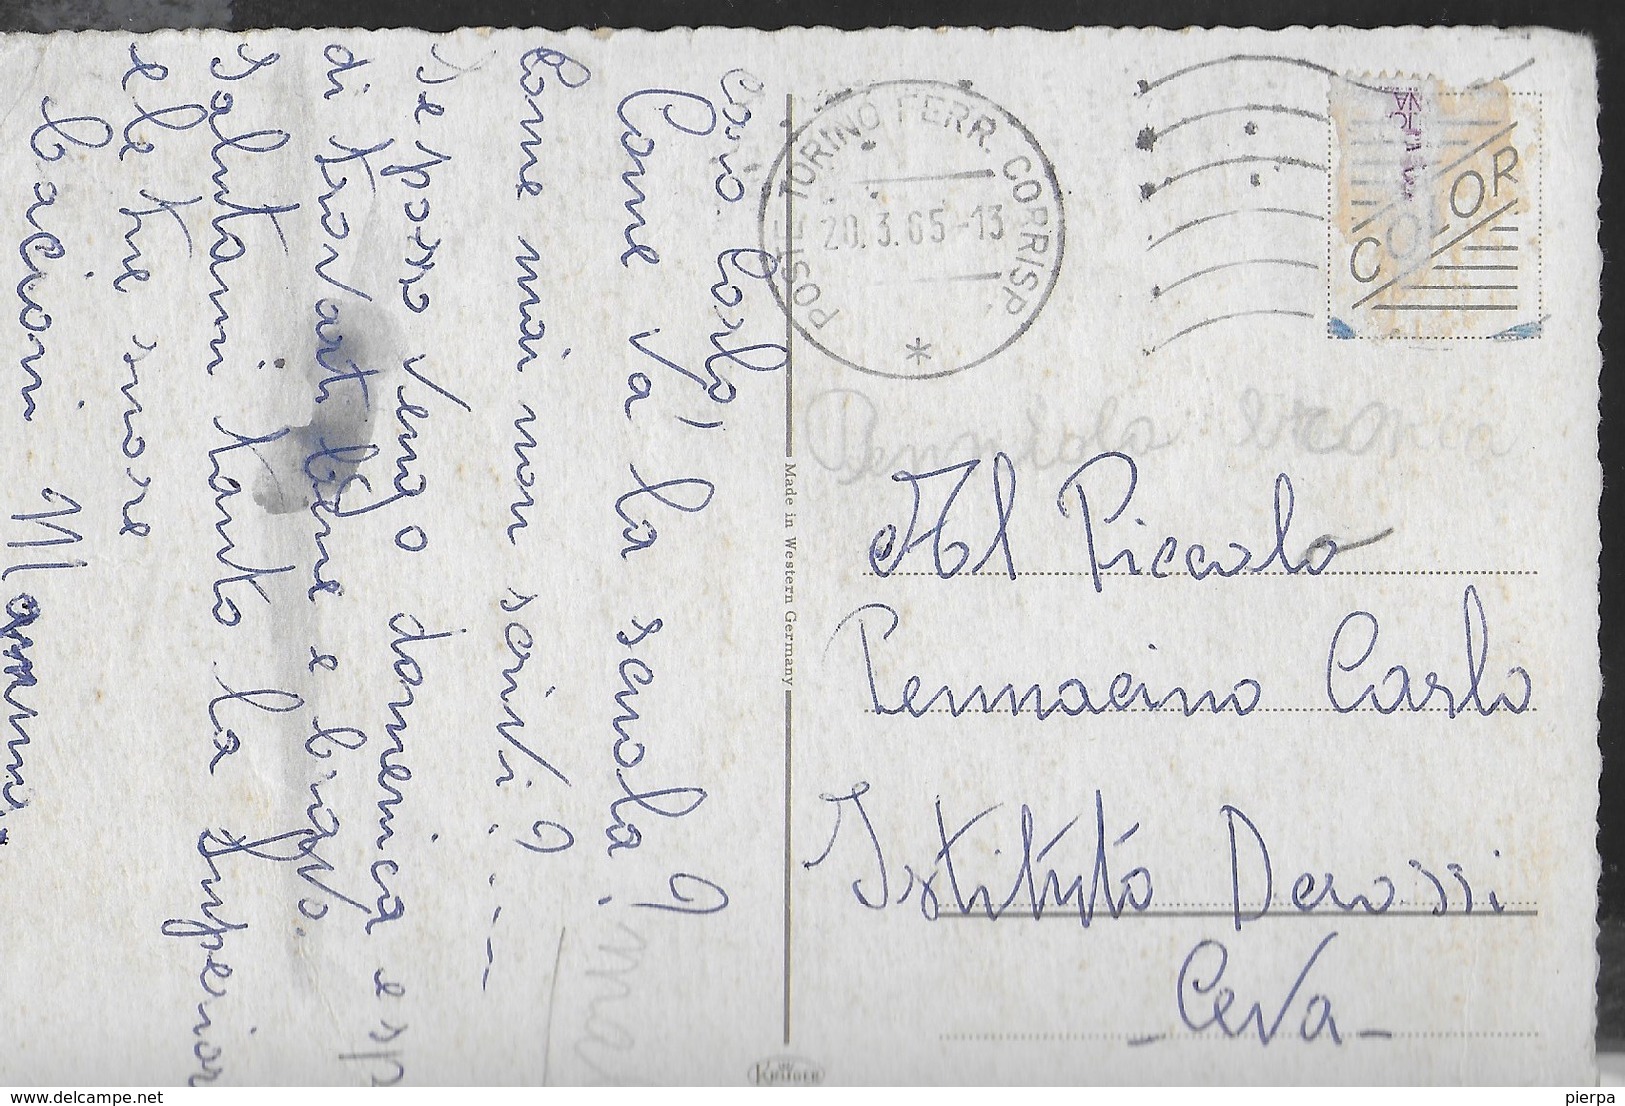 Caro Carlo,
Come va la scuola?
Come mai non scrivi? ...
Se posso vengo domenica e sp
di trovarti bene e bravo.
Salutami tanto la Superior
e le tre suore
Bacioni Mamma
Made in Western Germany
KRÜGER
POSTE TORINO FERR. CORRISP.
20.3.65-13
COLOR
Al Piccolo
Pennacino Carlo
Istituto Derossi
- Ceva -
delcampe.net
pierpa